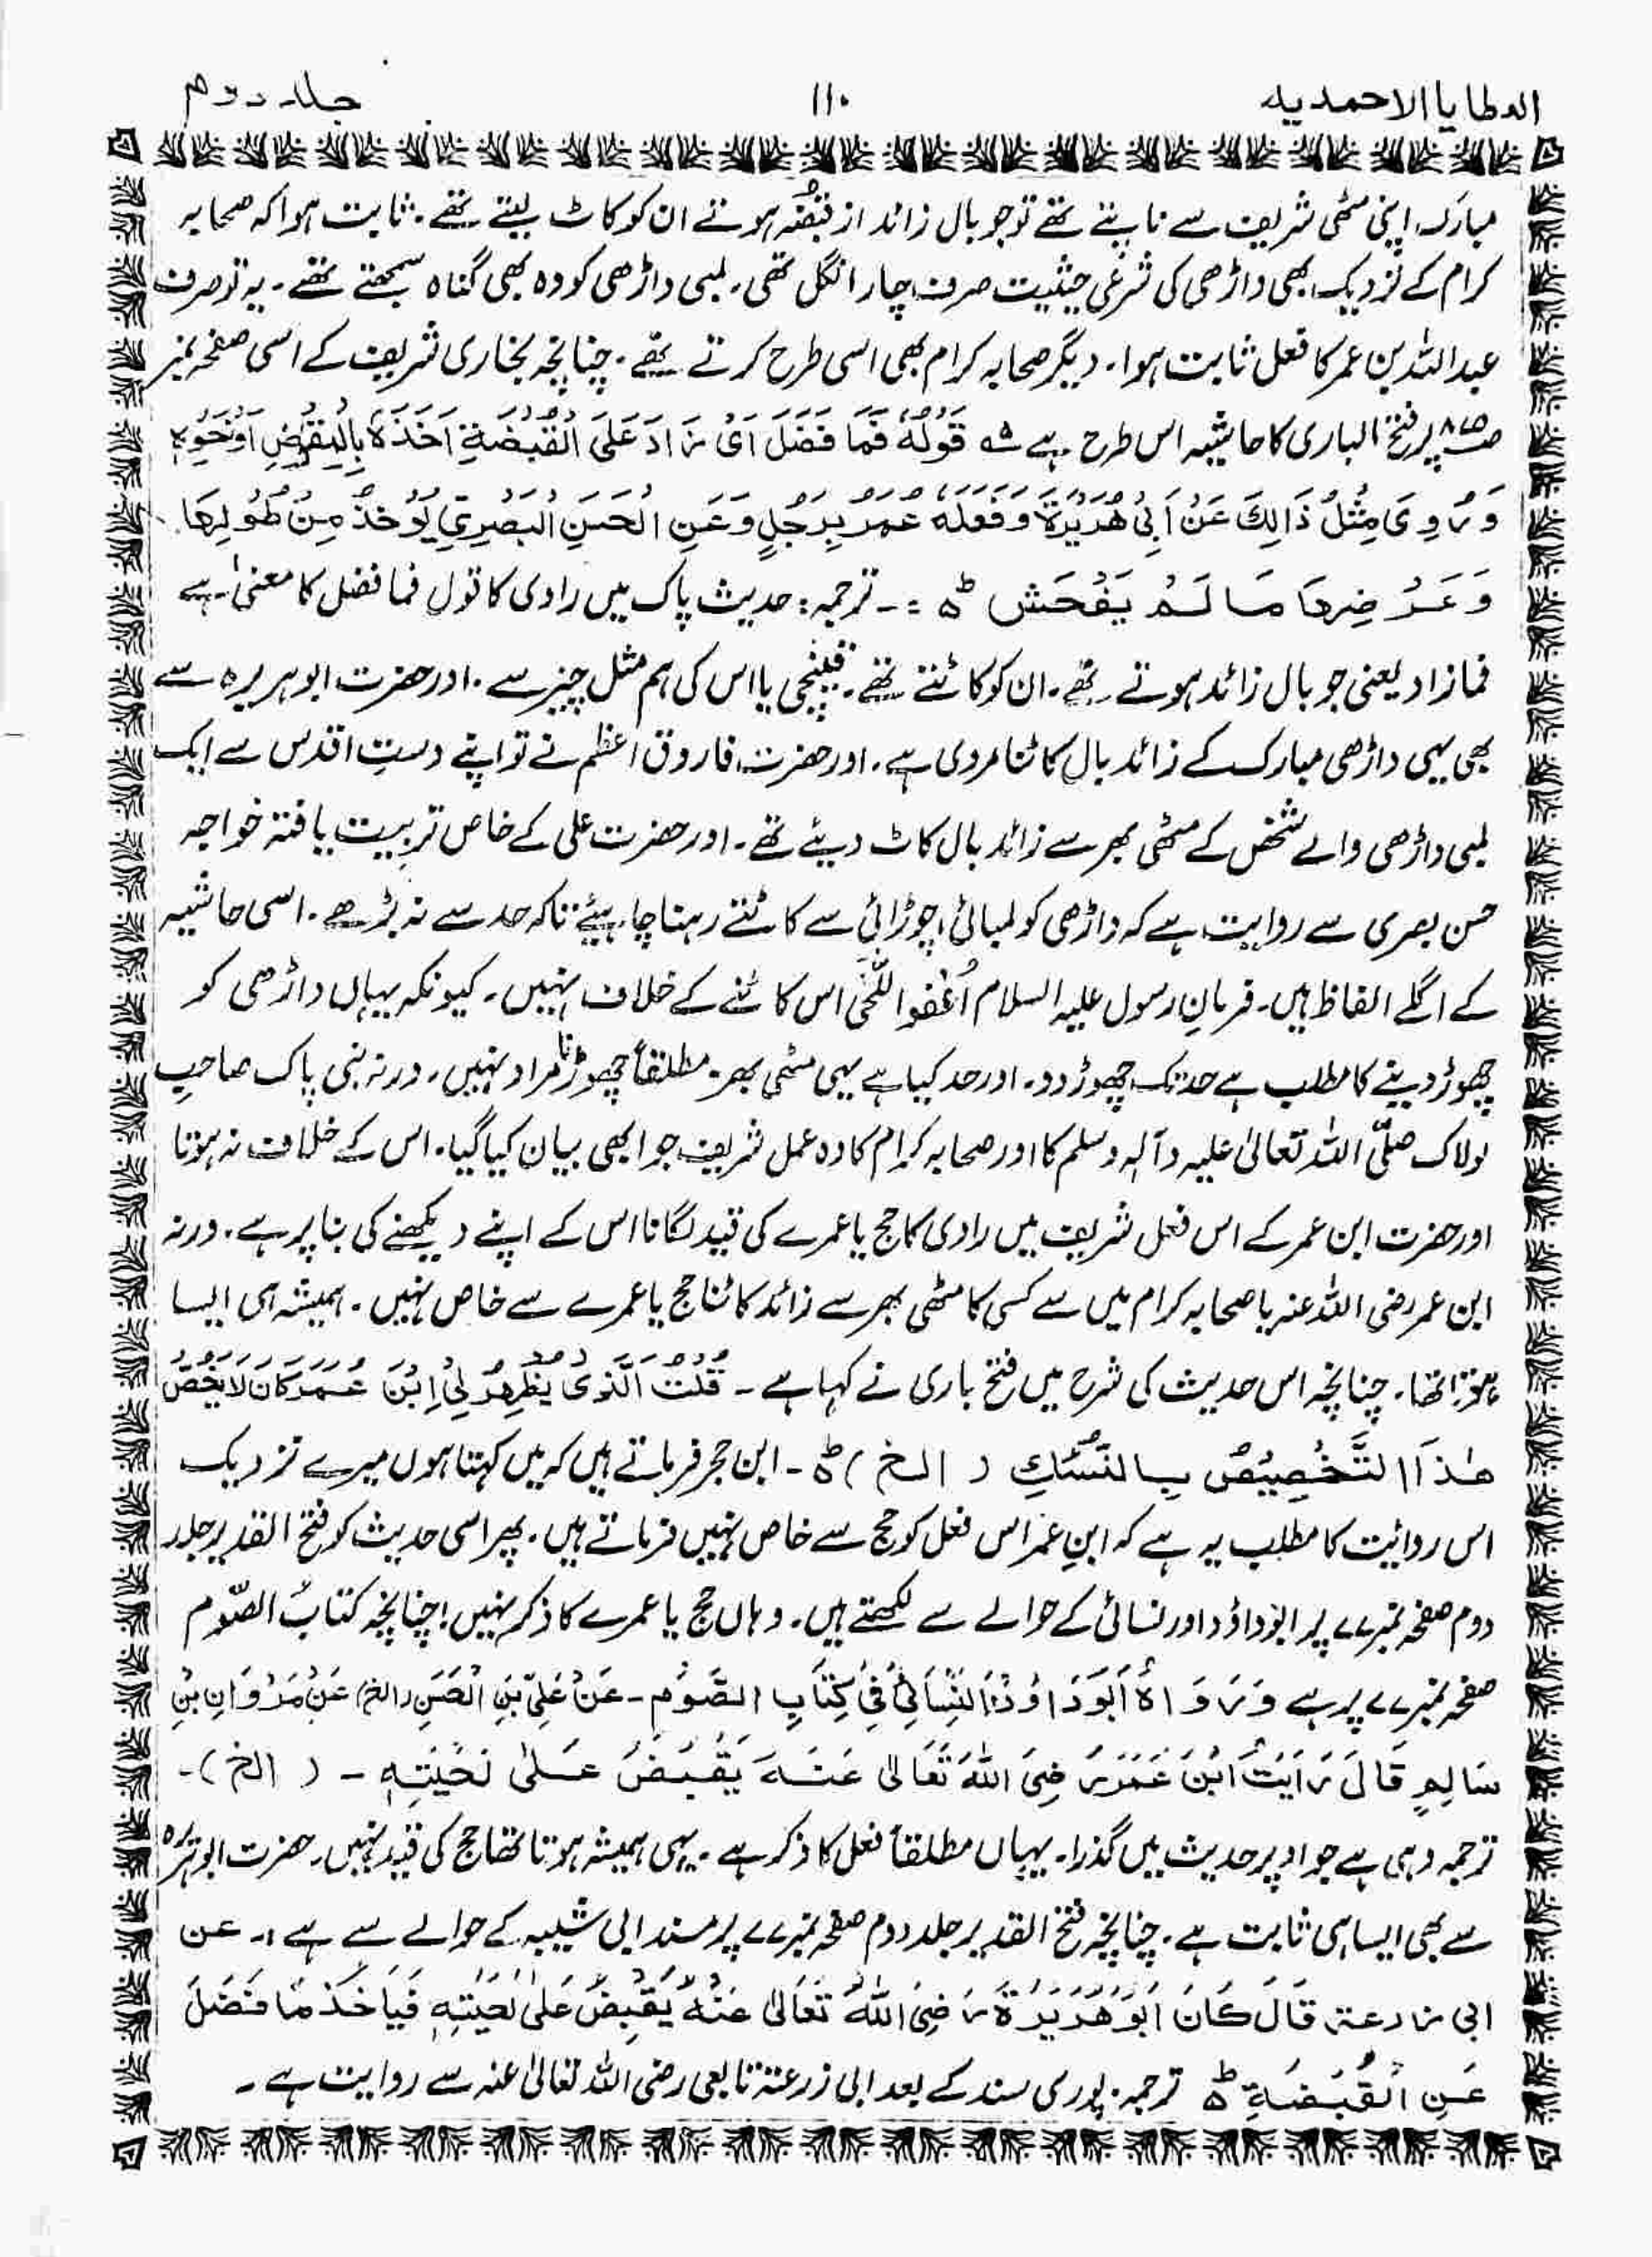 العطایا الاحمدیہ ۱۱۰ جلد دوم
مبارکہ اپنی مٹھی شریف سے ناپتے تھے تو جو بال زائد از قبضہ ہوتے ان کو کاٹ لیتے تھے۔ ثابت ہوا کہ صحابہ
کرام کے نزدیک بھی داڑھی کی شرعی حیثیت صرف چار انگل تھی۔ لمبی داڑھی کو وہ بھی گناہ سمجھتے تھے۔ یہ تو صرف
عبداللہ بن عمر کا فعل ثابت ہوا۔ دیگر صحابہ کرام بھی اسی طرح کرتے تھے۔ چنانچہ بخاری شریف کے اسی صفحہ نمبر
پر فتح الباری کا حاشیہ اس طرح ہے قَوْلُهُ فَمَا فَضَلَ اَیْ زَادَ عَلَی الْقُبْضَةِ اَخَذَهٗ بِالْمِقْرَضِ اَوْ نَحْوِہٖ
وَرُوِیَ مِثْلُ ذَالِكَ عَنْ اَبِیْ هُرَيْرَةَ وَفَعَلَهٗ عُمَرُ بِرَجُلٍ وَعَنِ الْحَسَنِ الْبَصَرِيِّ يُوْخَذُ مِنْ طُوْلِهَا
وَعَرْضِهَا مَا لَمْ يَفْحَشْ ط ۔ ترجمہ: حدیث پاک میں راوی کا قول فما فضل کا معنیٰ ہے
فمازاد یعنی جو بال زائد ہوتے تھے۔ ان کو کاٹتے تھے۔ قینچی یا اس کی ہم مثل چیز سے۔ اور حضرت ابوہریرہ سے
بھی یہی داڑھی مبارک کے زائد بال کاٹنا مروی ہے۔ اور حضرت فاروق اعظم نے تو اپنے دستِ اقدس سے ایک
لمبی داڑھی والے شخص کے مٹھی بھر سے زائد بال کاٹ دیئے تھے۔ اور حضرت علی کے خاص تربیت یافتہ خواجہ
حسن بصری سے روایت ہے کہ داڑھی کو لمبائی، چوڑائی سے کاٹتے رہنا چاہیئے تاکہ حد سے نہ بڑھے۔ اسی حاشیہ
کے اگلے الفاظ ہیں۔ فرمانِ رسول علیہ السلام اُعْفُوا اللُّحیٰ اس کاٹنے کے خلاف نہیں۔ کیونکہ یہاں داڑھی کو
چھوڑ دینے کا مطلب ہے حد تک چھوڑ دو۔ اور حد کیا ہے یہی مٹھی بھر۔ مطلقاً چھوڑنا مراد نہیں۔ ورنہ نبی پاک صاحبِ
لولاک صلّی اللہ تعالیٰ علیہ وآلہ وسلم کا اور صحابہ کرام کا وہ عمل شریف جو ابھی بیان کیا گیا۔ اس کے خلاف نہ ہوتا
اور حضرت ابن عمر کے اس فعل شریف میں راوی کا حج یا عمرے کی قید لگانا اس کے اپنے دیکھنے کی بنا پر ہے۔ ورنہ
ابن عمر رضی اللہ عنہ یا صحابہ کرام میں سے کسی کا مٹھی بھر سے زائد کاٹنا حج یا عمرے سے خاص نہیں۔ ہمیشہ ہی ایسا
ہوتا تھا۔ چنانچہ اس حدیث کی شرح میں فتح باری نے کہا ہے ۔ قُلْتُ الَّذِیْ یَظْهَرُ لِیْ اِبْنَ عُمَرَ كَانَ لَا یَخُصُّ
هٰذَا التَّخْصِیْصَ بِالنُّسُكِ ( الخ ) ط ۔ ابن حجر فرماتے ہیں کہ میں کہتا ہوں میرے نزدیک
اس روائیت کا مطلب یہ ہے کہ ابنِ عمر اس فعل کو حج سے خاص نہیں فرماتے ہیں۔ پھر اسی حدیث کو فتح القدیر جلد
دوم صفحہ نمبر ۷۷ پر ابوداؤد اور نسائی کے حوالے سے لکھتے ہیں۔ وہاں حج یا عمرے کا ذکر نہیں؛ چنانچہ کتابُ الصّوم
صفحہ نمبر ۷۷ پر ہے وَرَوَاهُ اَبُوْدَاوُدَ النِّسَائِیُّ فِیْ كِتَابِ الصَّوْمِ ۔ عَنْ عَلِیِّ بْنِ الْحَسَنِ (الخ) عَنْ مَرْوَانِ بْنِ
سَالِمٍ قَالَ رَاَیْتُ ابْنَ عُمَرَ رَضِیَ اللهُ تَعَالٰی عَنْهُ یَقْبِضُ عَلٰی لَحْیَتِهٖ ۔ ( الخ )۔
ترجمہ وہی ہے جو اوپر حدیث میں گذرا۔ یہاں مطلقاً فعل کا ذکر ہے۔ یہی ہمیشہ ہوتا تھا حج کی قید نہیں۔ حضرت ابوہریرہ
سے بھی ایسا ہی ثابت ہے۔ چنانچہ فتح القدیر جلد دوم صفحہ نمبر ۷۷ پر مسند ابی شیبہ کے حوالے سے ہے :۔ عن
ابی زرعۃ قَالَ كَانَ اَبُوْهُرَیْرَةَ رَضِیَ اللهُ تَعَالٰی عَنْهُ یَقْبِضُ عَلٰی لَحْیَتِهٖ فَیَاخُذُ مَا فَضَلَ
عَنِ الْقُبْضَةِ ط ترجمہ: پوری سند کے بعد ابی زرعتہ تابعی رضی اللہ تعالیٰ عنہ سے روایت ہے ۔